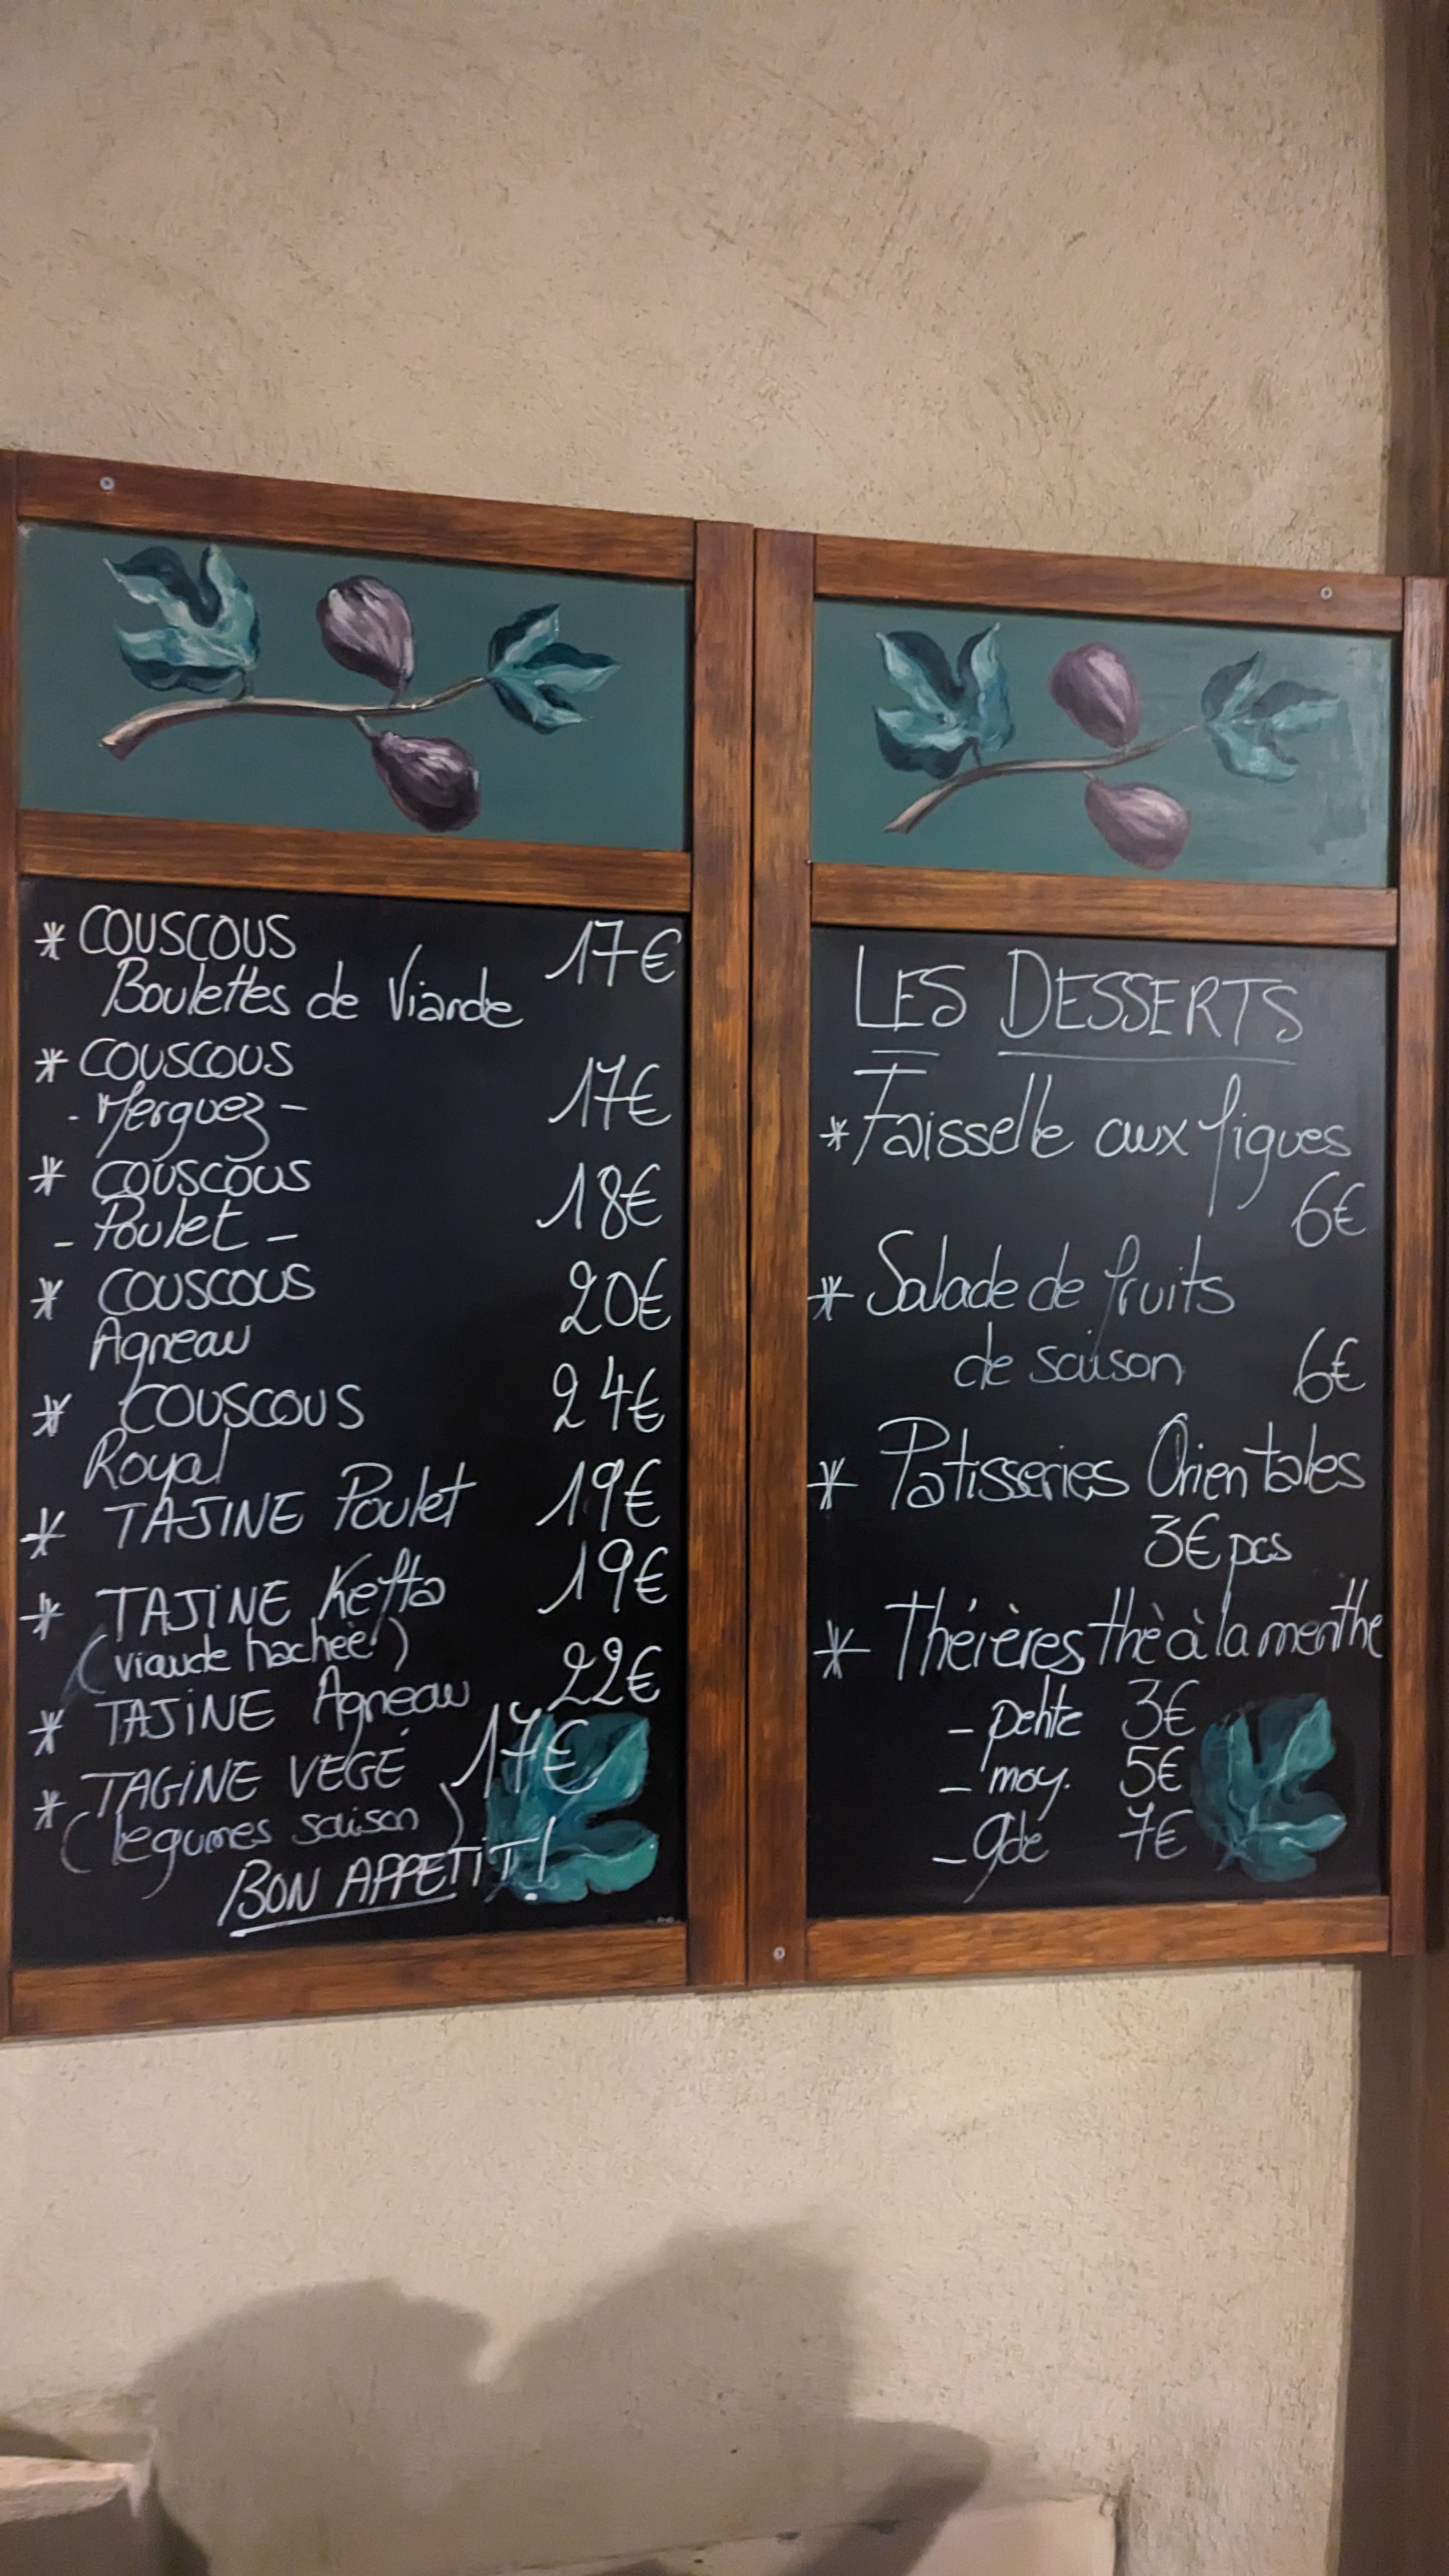 * COUSCOUS 17€
Boulettes de Viande
* COUSCOUS
- Merguez - 17€
* COUSCOUS 18€
- Poulet -
* COUSCOUS 20€
Agneau
* COUSCOUS 24€
Royal
* TAJINE Poulet 19€
* TAJINE Kefta 19€
(viande hachée)
* TAJINE Agneau 22€
* TAGINE VEGÉ 17€
(legumes saison)
BON APPETIT!
LES DESSERTS
* Faisselle aux figues
6€
* Salade de fruits
de saison 6€
* Patisseries Orientales
3€ pcs
* Théières thè à la menthe
- petite 3€
- moy. 5€
- gde 7€